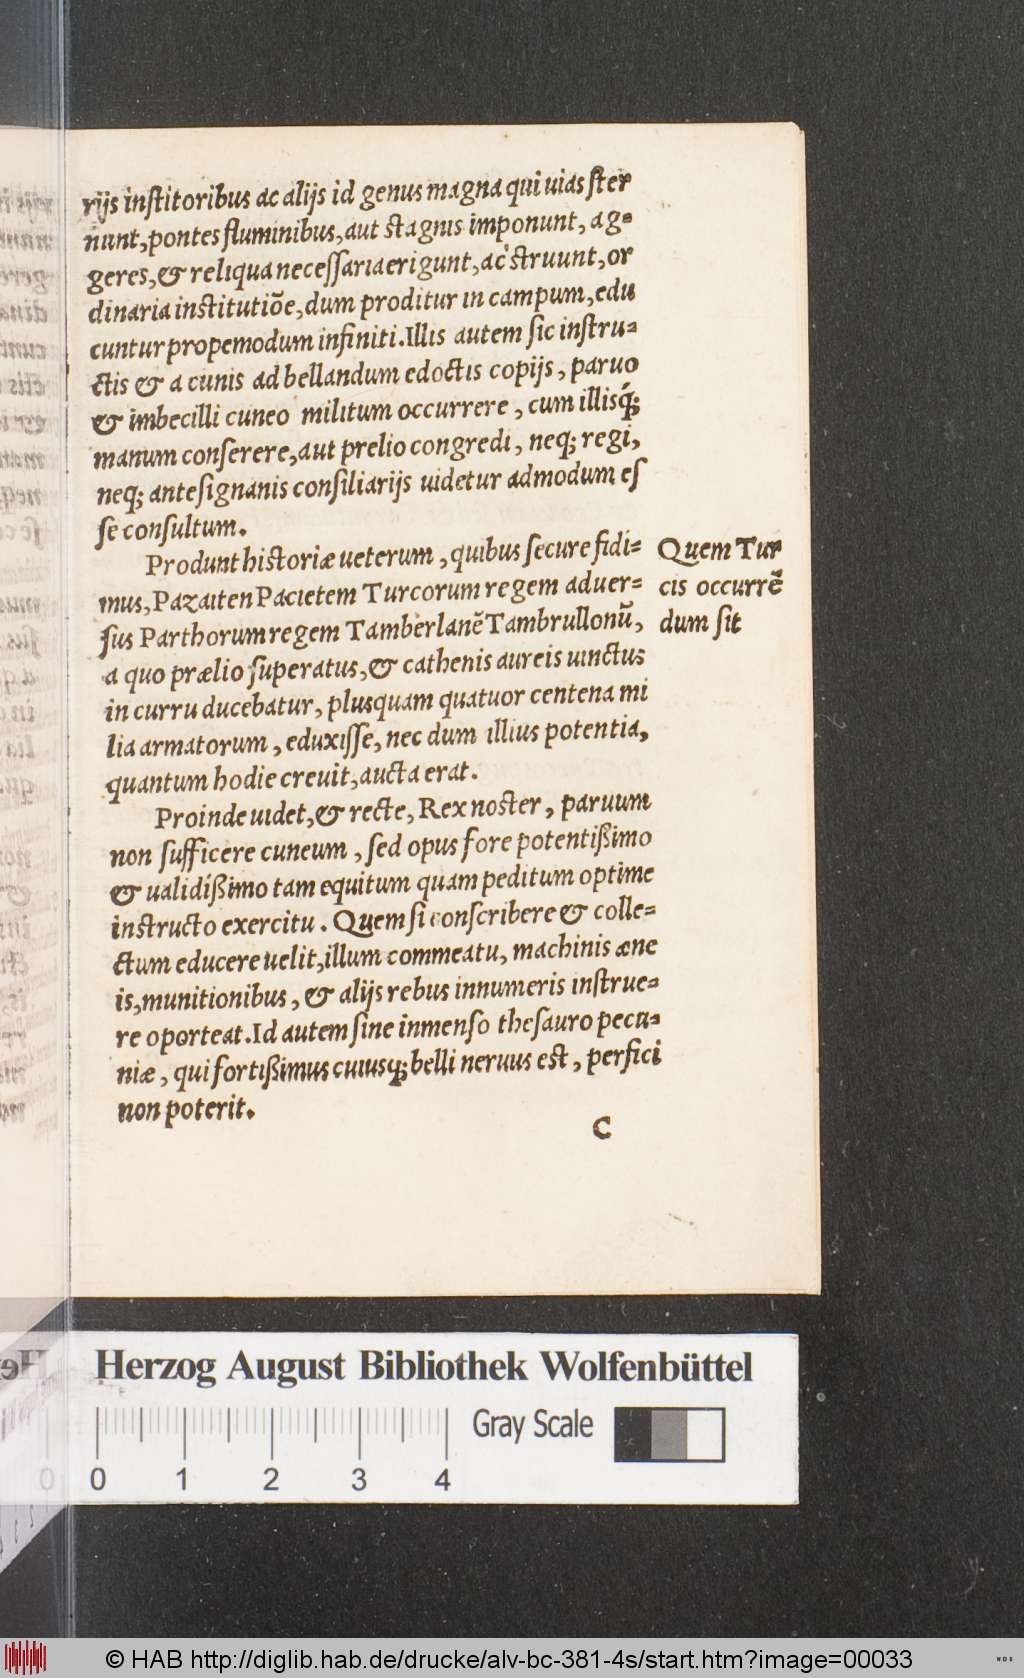 rijs inſtitoribus ac alijs id genus magna qui uias ſter
nunt, pontes fluminibus, aut ſtagnis imponunt, ag=
geres, & reliqua neceſſaria erigunt, ac ſtruunt, or
dinaria inſtitutiõe, dum proditur in campum, edu
cuntur propemodum infiniti. Illis autem ſic inſtru=
ctis & a cunis ad bellandum edoctis copijs, paruo
& imbecilli cuneo militum occurrere, cum illisq́;
manum conſerere, aut prelio congredi, neq; regi,
neq; anteſignanis conſiliarijs uidetur admodum eſ
ſe conſultum.
Produnt hiſtoriæ ueterum, quibus ſecure fidi=
mus, Pazaiten Pacietem Turcorum regem aduer=
ſus Parthorum regem Tamberlanẽ Tambrullonũ,
a quo prælio ſuperatus, & cathenis aureis uinctus
in curru ducebatur, plusquam quatuor centena mi
lia armatorum, eduxiſſe, nec dum illius potentia,
quantum hodie creuit, aucta erat.
Quem Tur
cis occurrẽ
dum ſit
Proinde uidet, & recte, Rex noſter, paruum
non ſufficere cuneum, ſed opus fore potentißimo
& ualidißimo tam equitum quam peditum optime
inſtructo exercitu. Quem ſi conſcribere & colle=
ctum educere uelit, illum commeatu, machinis æne
is, munitionibus, & alijs rebus innumeris inſtrue=
re oporteat. Id autem ſine inmenſo theſauro pecu=
niæ, qui fortißimus cuiusq; belli neruus eſt, perfici
non poterit.
C
Herzog August Bibliothek Wolfenbüttel
Gray Scale
0 1 2 3 4
© HAB http://diglib.hab.de/drucke/alv-bc-381-4s/start.htm?image=00033